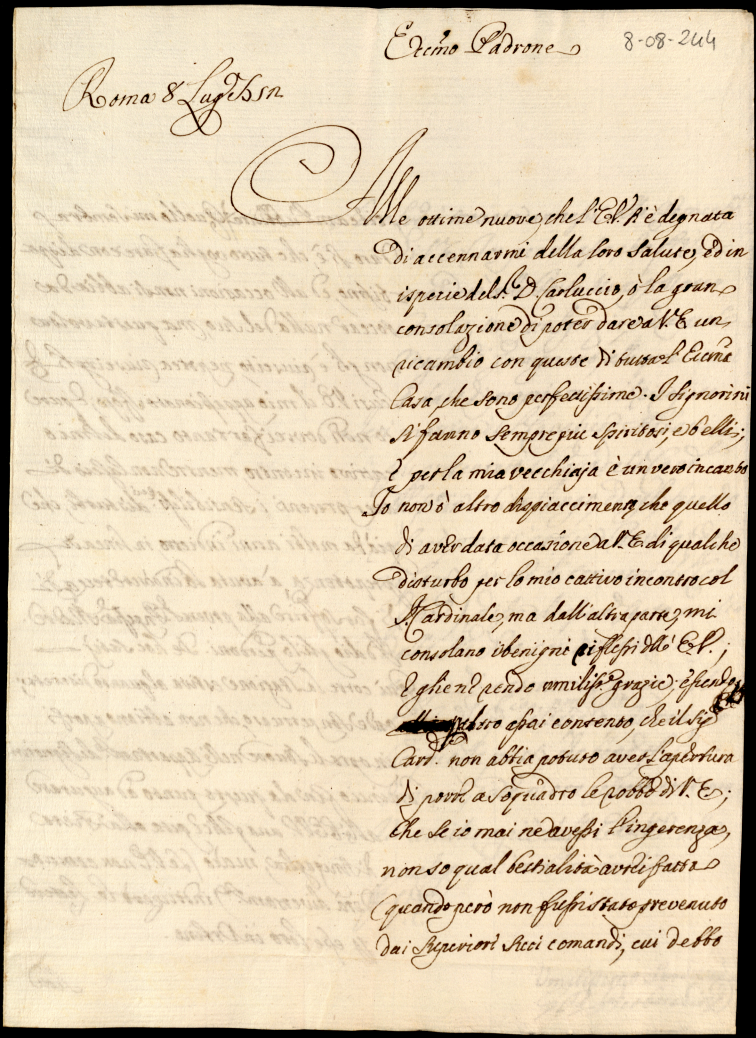 Eccmo Padrone
8-08-244
Roma 8 Lug.
Alle ottime nuove, che l'E.V. s'è degnata
di accennarmi della loro salute, ed in
ispecie del S.r D. Carluccio, ò la gran
consolazione di poter dare a V.E. un
ricambio con queste di tutta l'Eccma
Casa, che sono perfettissime. I Signorini
si fanno sempre più spiritosi, e belli;
e per la mia vecchiaja è un vero incanto
Io non ò altro dispiaccimento, che quello
di aver data occasione a V.E. di qualche
disturbo per lo mio cattivo incontro col
Cardinale, ma dall'altra parte, mi
consolano i benigni riflessi dell' E.V.;
e gliene rendo umiliss.e grazie; essendo
altro assai contento, che il Sig.r
Card. non abbia potuto aver l'apertura
di porre a soquadro le robbe di V.E.;
che se io mai ne avessi l'ingerenza,
non so qual bestialità avrei fatta
quando però non fussi stato prevenuto
dai Superiori Suoi comandi, cui debbo